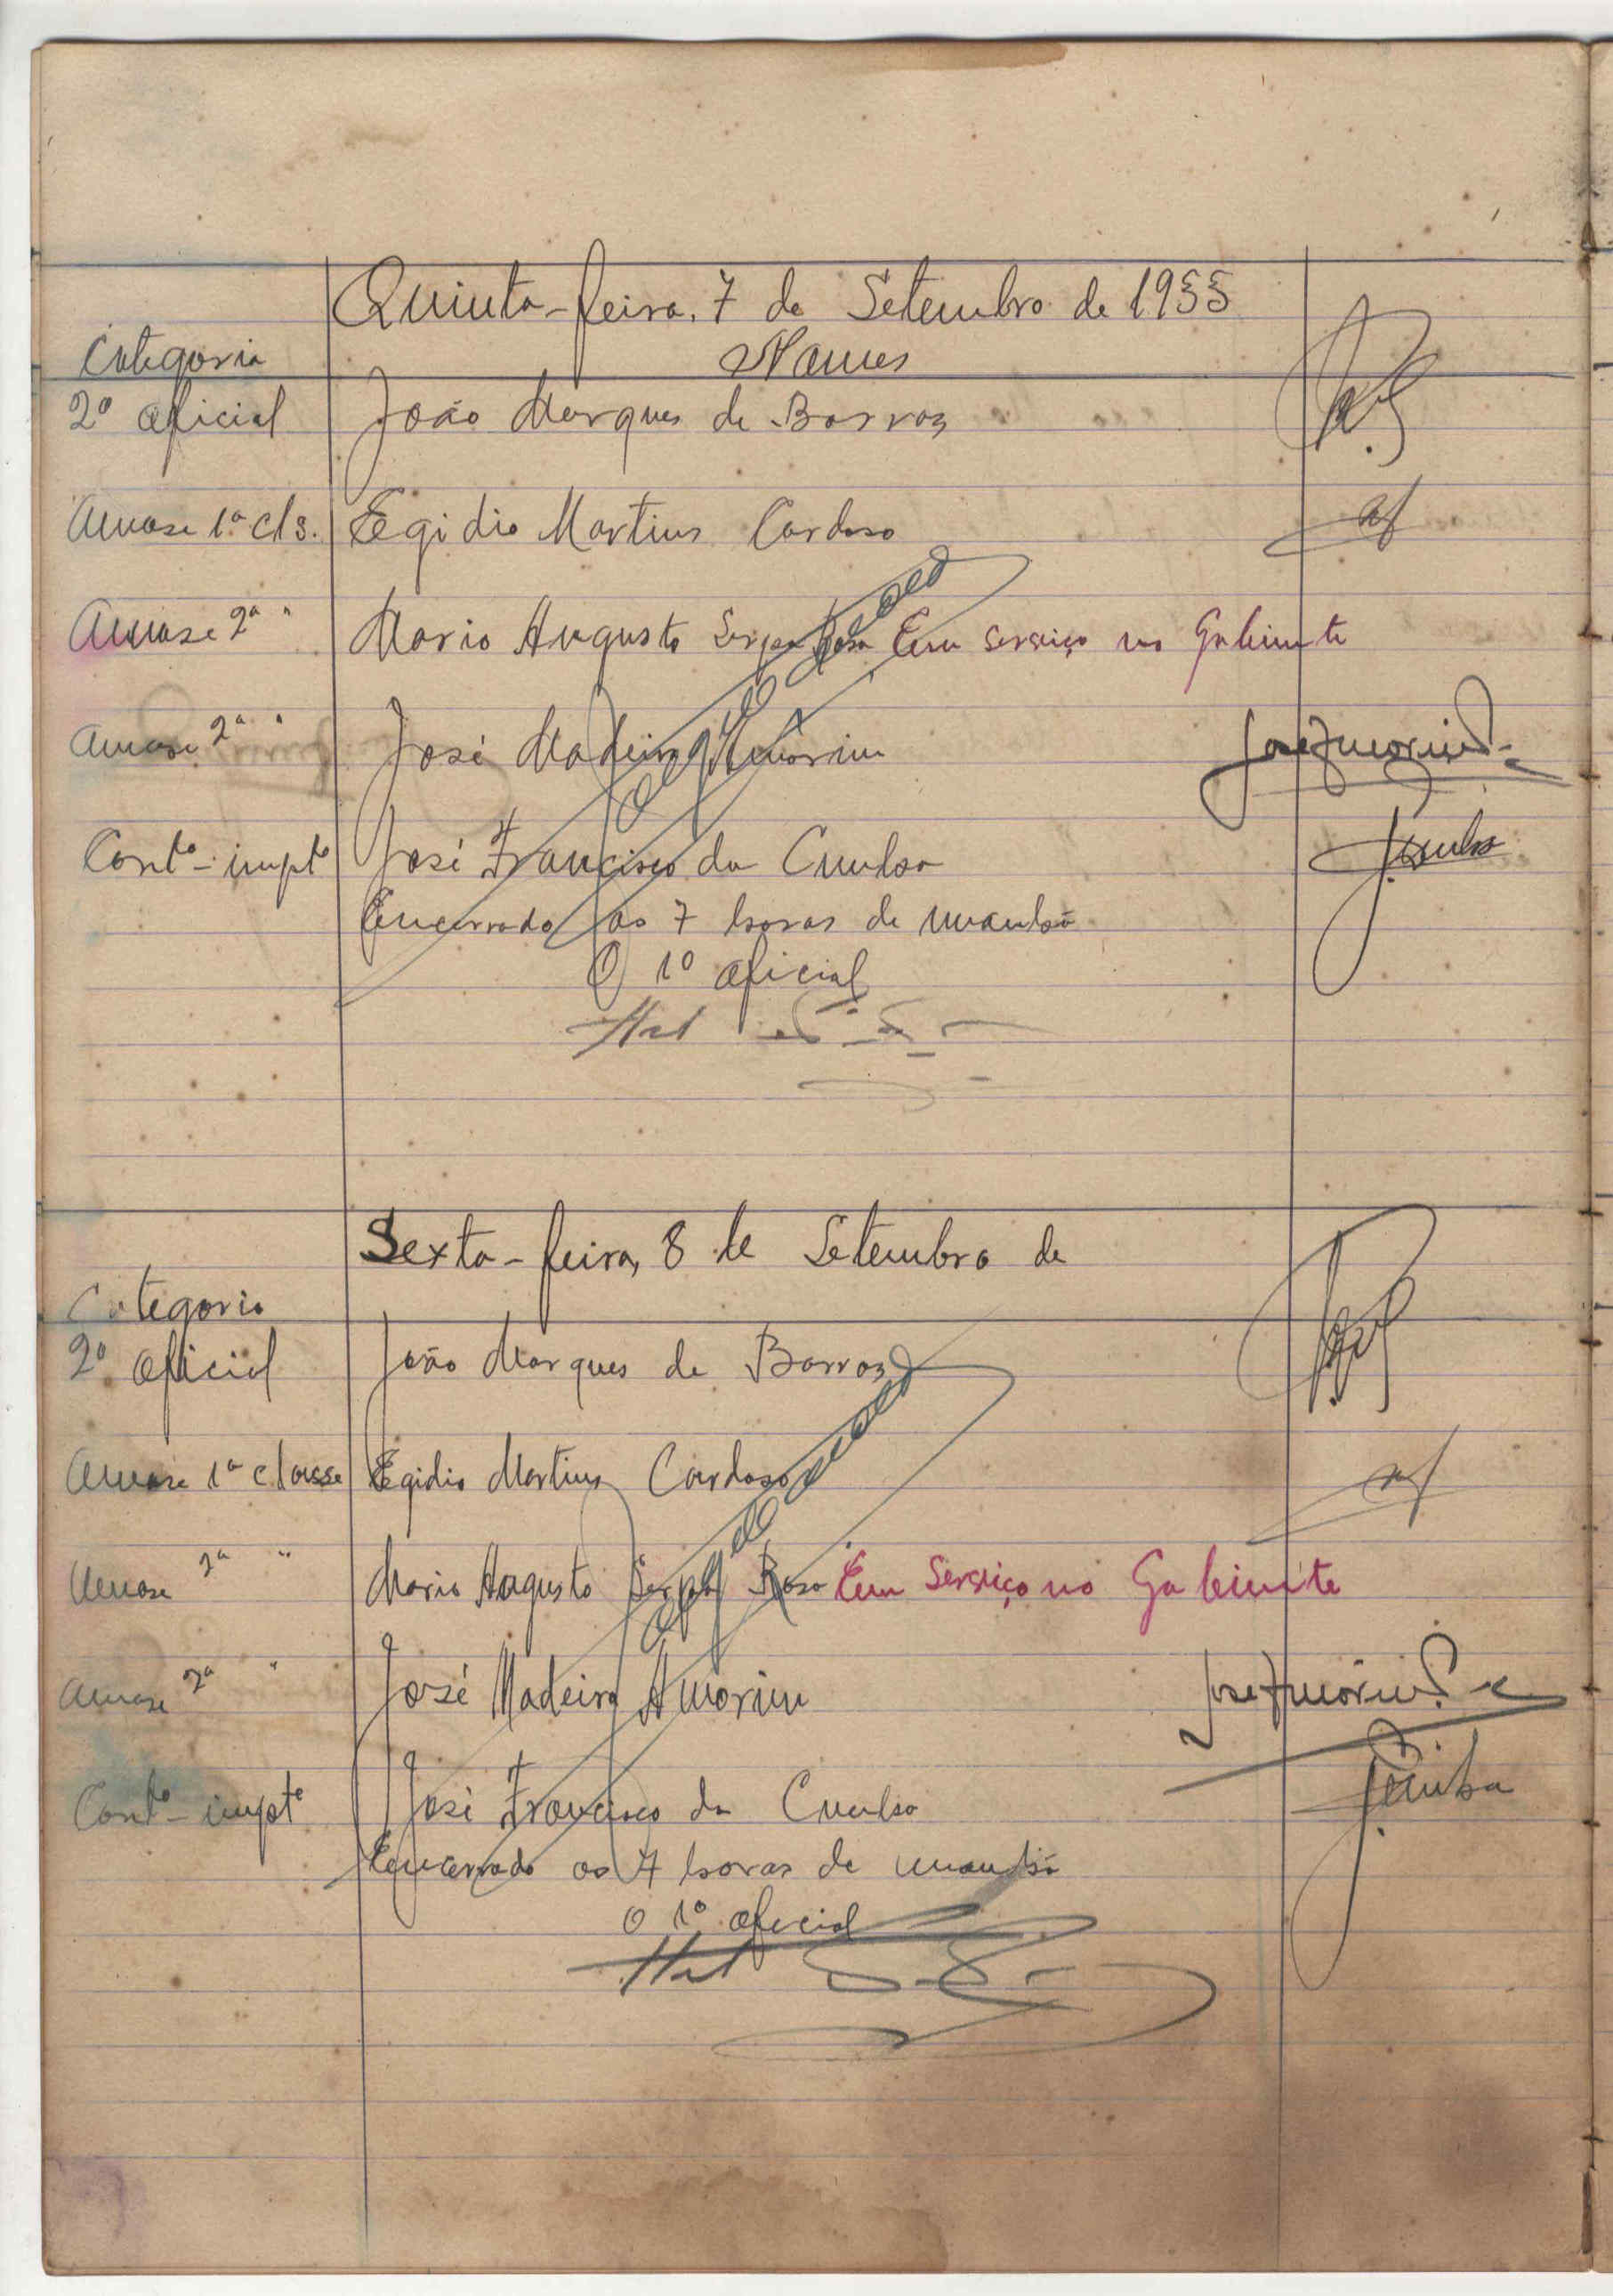 Quinta-feira, 7 de Setembro de 1955
Categoria Nomes
2º Oficial João Marques de Barros
Amase 1ª cls. Egidio Martins Cardoso
Amase 2ª " Mario Augusto Serpa Rosa Em serviço no Gabinete
Amase 2ª " José Madeira Amorim José Amorim
Contº-imptº José Francisco da Cunha Cunha
Encerrado as 7 horas de manhã
O 1º Oficial
Sexta-feira, 8 de Setembro de
Categoria
2º Oficial João Marques de Barros
Amase 1ª classe Egidio Martins Cardoso
Amase 2ª " Mario Augusto Serpa Rosa Em Serviço no Gabinete
Amase 2ª " José Madeira Amorim José Amorim
Contº-imptº José Francisco da Cunha Cunha
Encerrado as 7 horas de manhã
O 1º Oficial